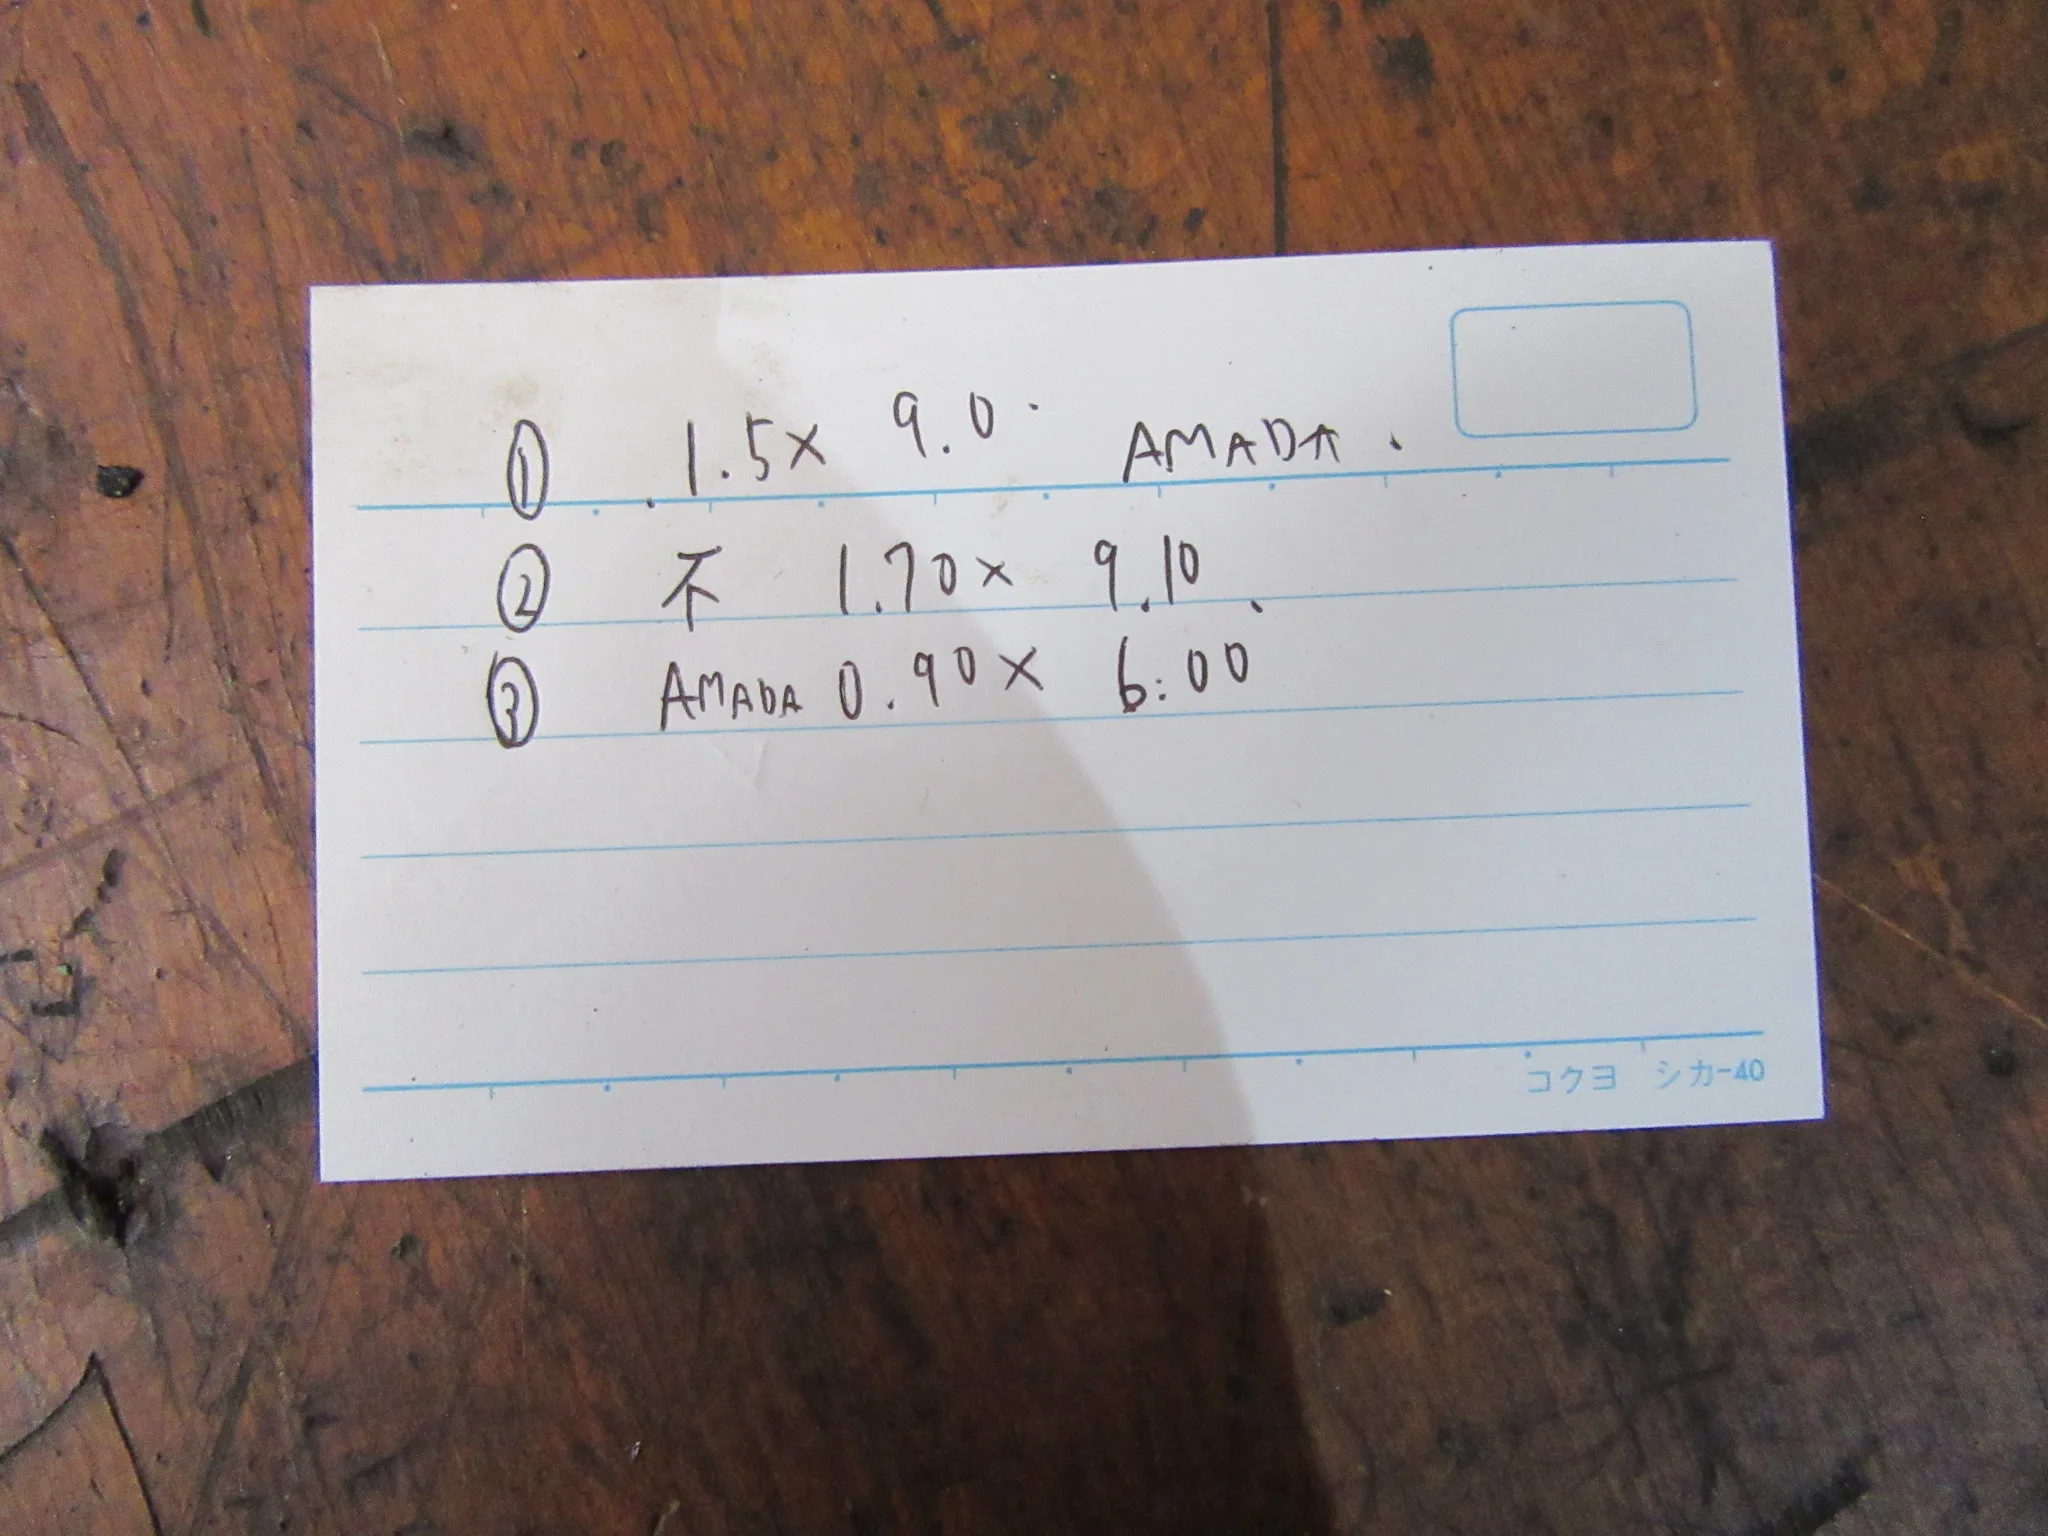 ① .1.5× 9.0. AMADA.
② 不 1.70× 9.10.
③ AMADA 0.90× 6:00
コクヨ シカ-40